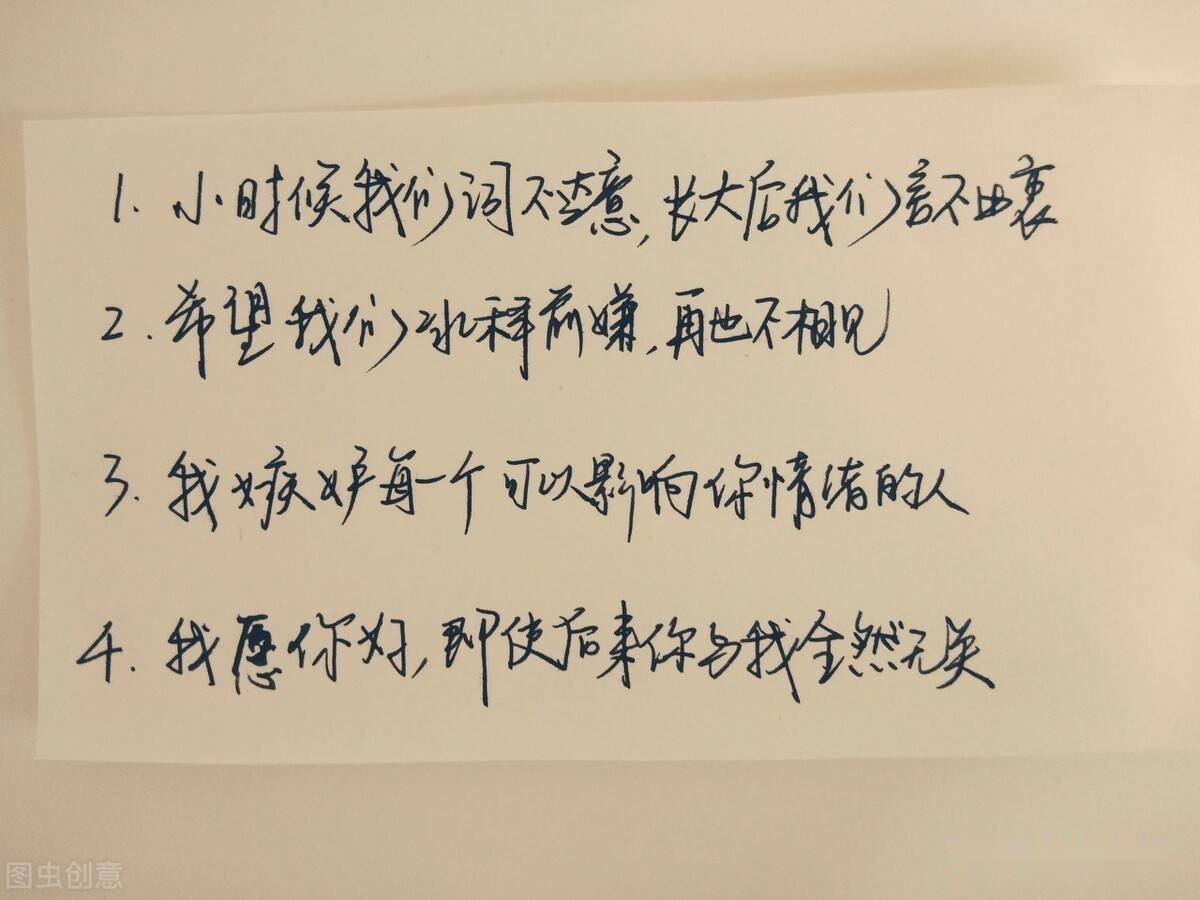 1. 小时候我们词不达意，长大后我们言不由衷
2. 希望我们冰释前嫌，再也不相见
3. 我嫉妒每一个可以影响你情绪的人
4. 我愿你好，即使后来你与我全然无关
图虫创意